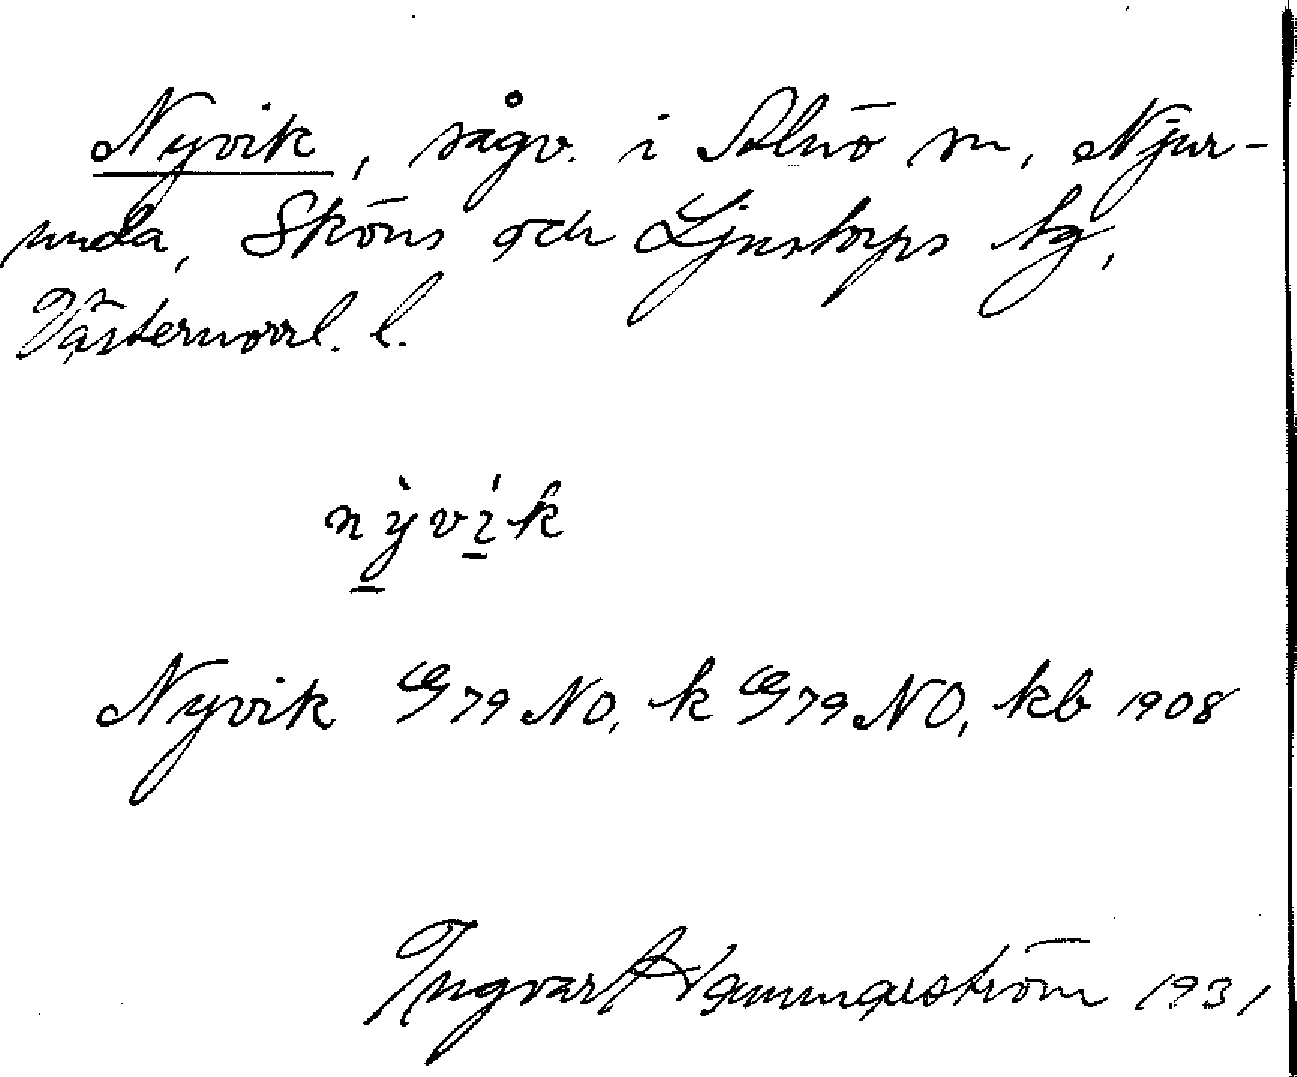 Nyvik, sågv. i Alnö sn, Njur-
unda, Sköns och Ljustorps tg,
Västernorrl. l.
nỳvík
Nyvik G 79 NO, k G 79 NO, kb 1908
Ingvar Hammarström 1931